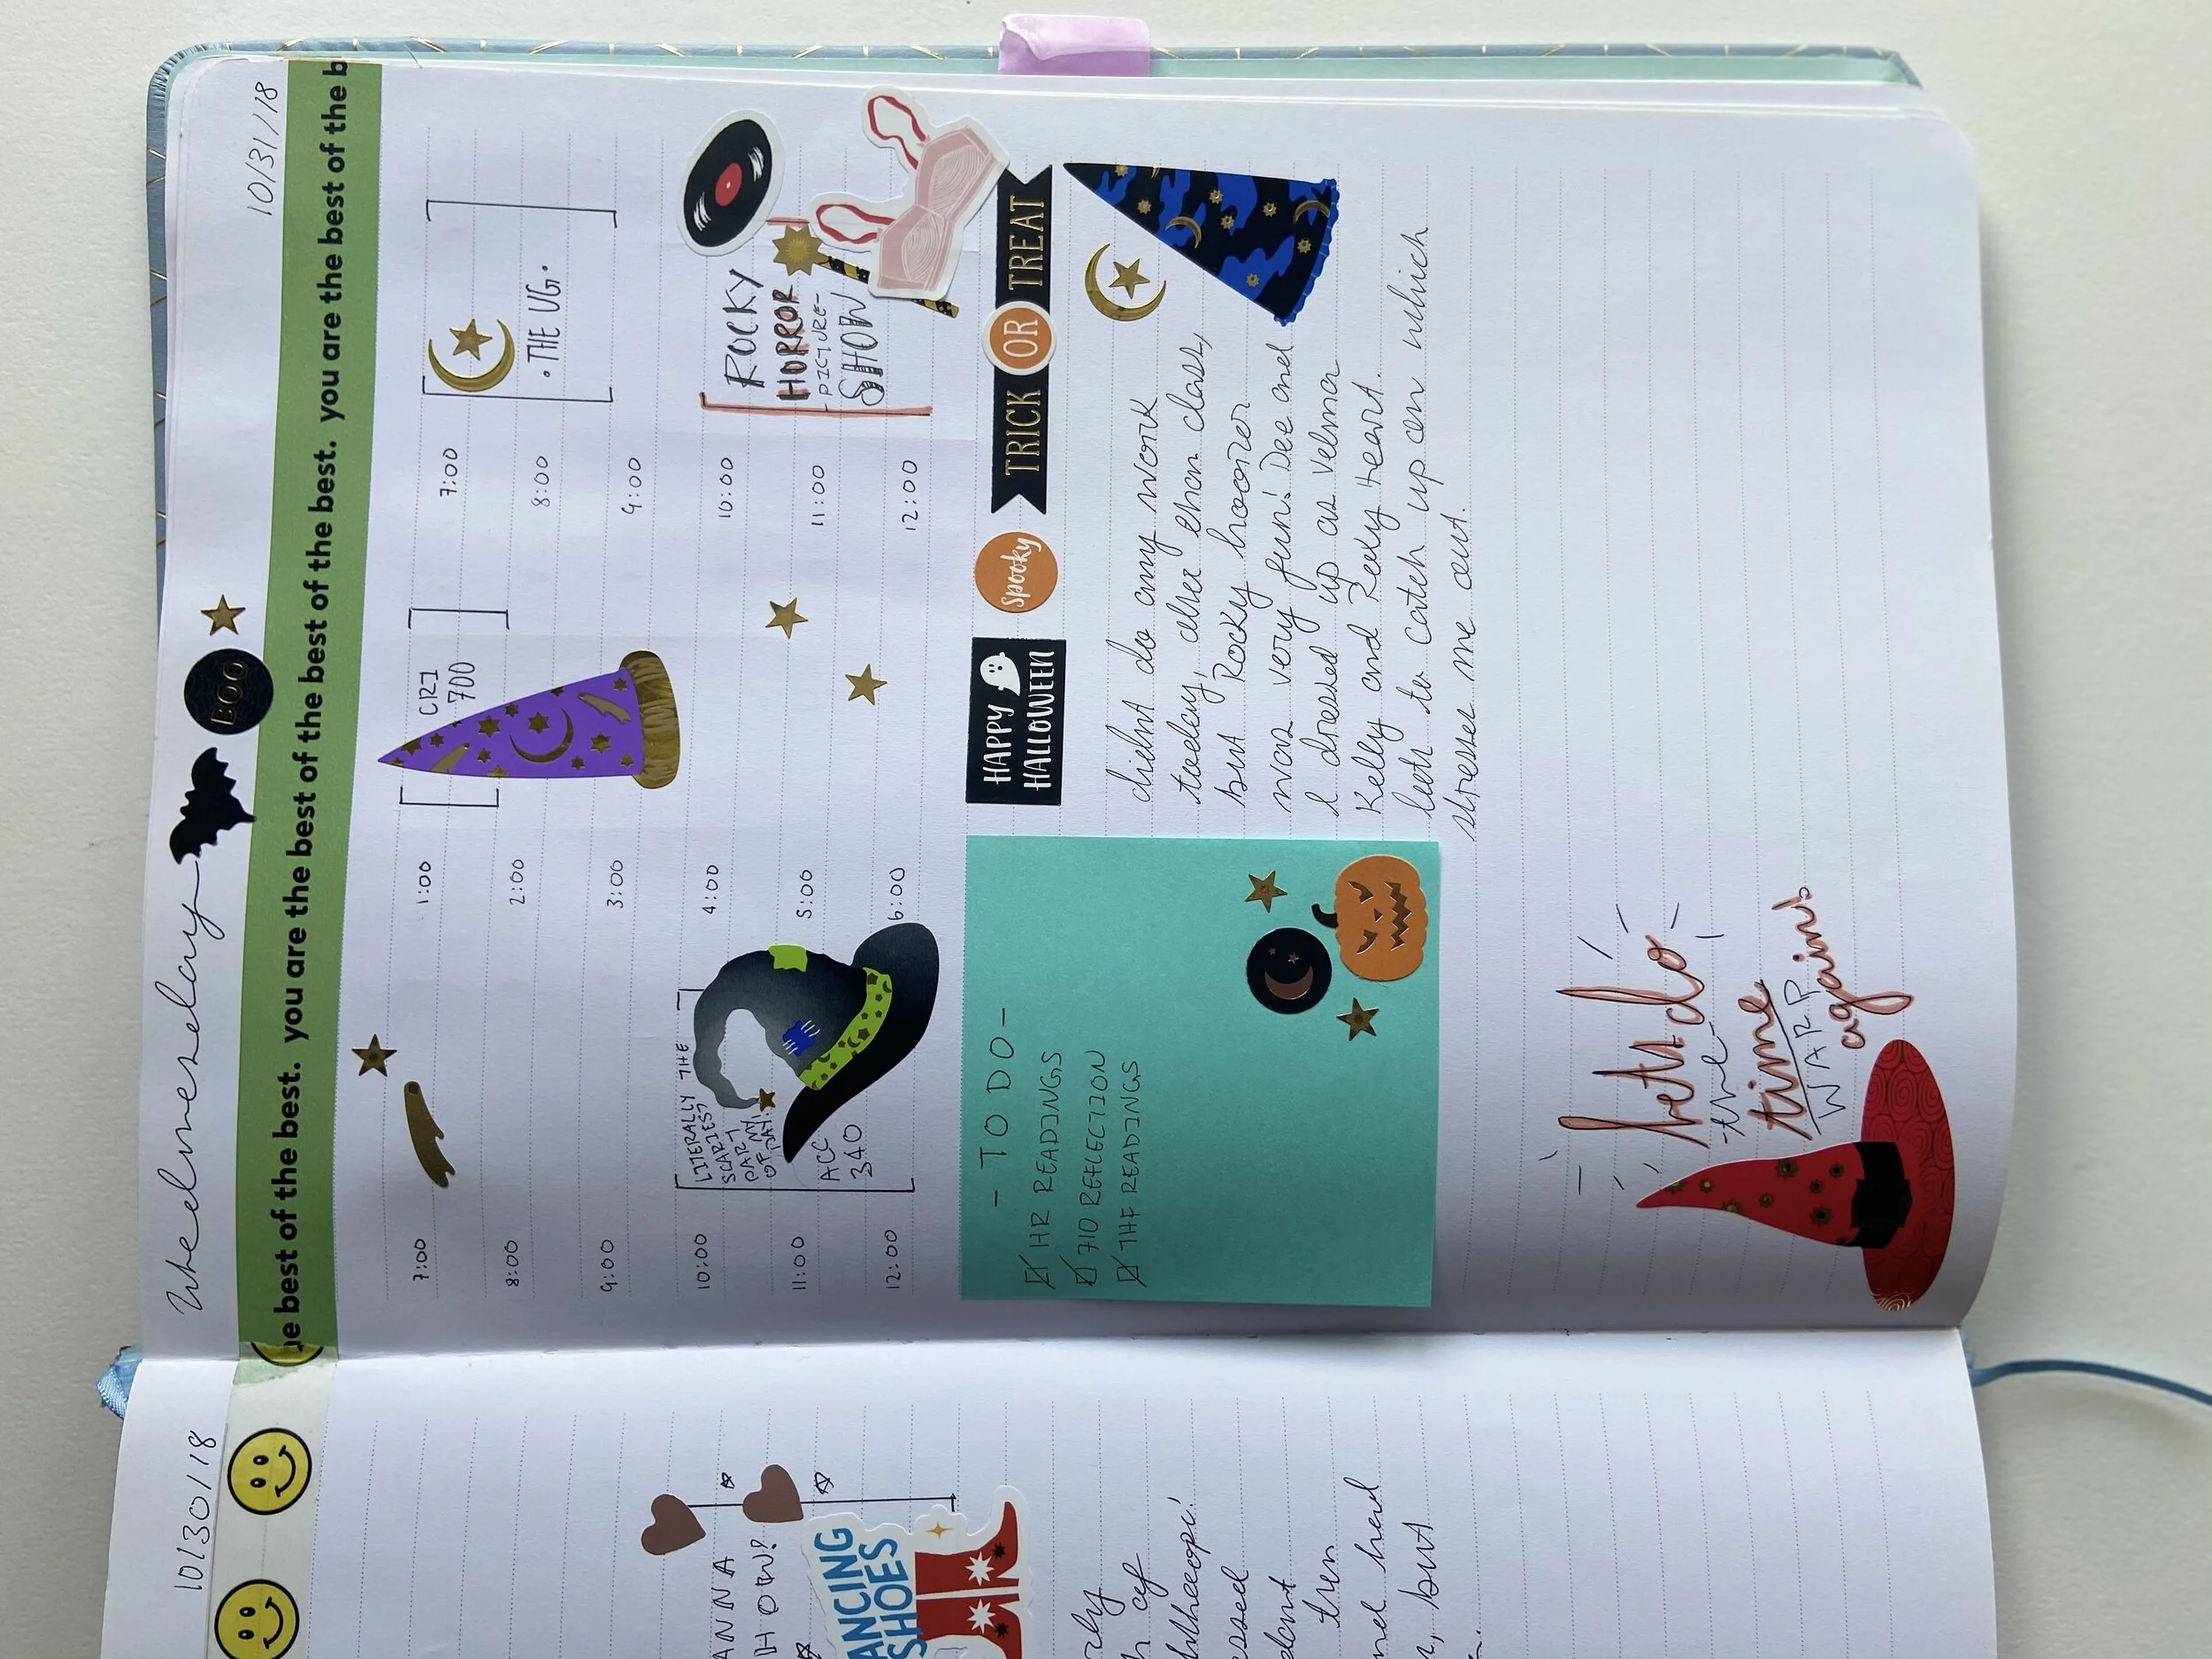 10/30/18
ANNA
HOW?
ANCING
SHOES
but
Wednesday
BOO
10/31/18
he best of the best. you are the best of the best. you are the best of the best. you are the best of the b
7:00
8:00
9:00
10:00
11:00
12:00
LITERALLY THE
SCARIEST
PART
OF MY
DAY!
ACC
340
1:00
2:00
3:00
4:00
5:00
6:00
CRI
700
7:00
8:00
9:00
10:00
11:00
12:00
• THE UG •
ROCKY
HORROR
-PICTURE-
SHOW
- TO DO -
HR READINGS
710 REFLECTION
THF READINGS
HAPPY
HALLOWEEN
Spooky
TRICK OR TREAT
didnt do any work
today, other then class,
but Rocky horror
was very fun! Dee and
I dressed up as Velma
Kelly and Roxy Heart.
left to catch up on which
stresses me out.
let's do
the
time
WARP
again!